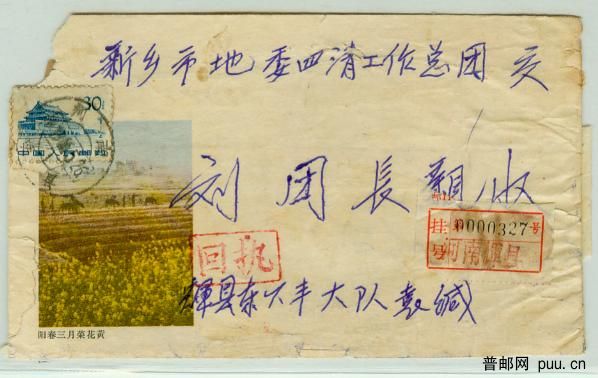 新乡市地委四清工作总团 交
30
刘团長親收
挂号 0000327 号
河南辉县
回执
輝县东 丰大队 缄
阳春三月菜花黄
普邮网 puu.cn